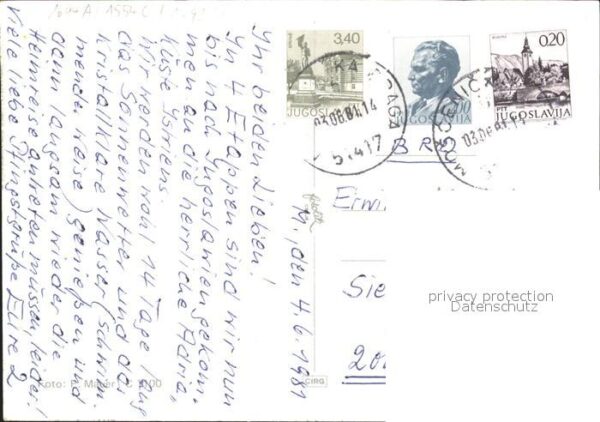 M., den 4.6.1981
Ihr beiden Lieben!
In 4 Etappen sind wir nun
bis nach Jugoslawien gekom-
men an die herrliche Adria,
Küste Istriens.
Wir werden wohl 14 Tage lang
das Sonnenwetter und das
kristallklare Wasser (schwim-
mender weise) genießen und
dann langsam wieder die
Heimreise antreten müssen, leider!
Viele liebe Pfingstgrüße Eure 2
3,40
JUGOSLAVIJA
JUGOSLAVIJA
0,20
PTT JUGOSLAVIJA
03.06.81.14
51417
03.06.81.14
BRD
Sie
privacy protection
Datenschutz
Foto:
CIRG